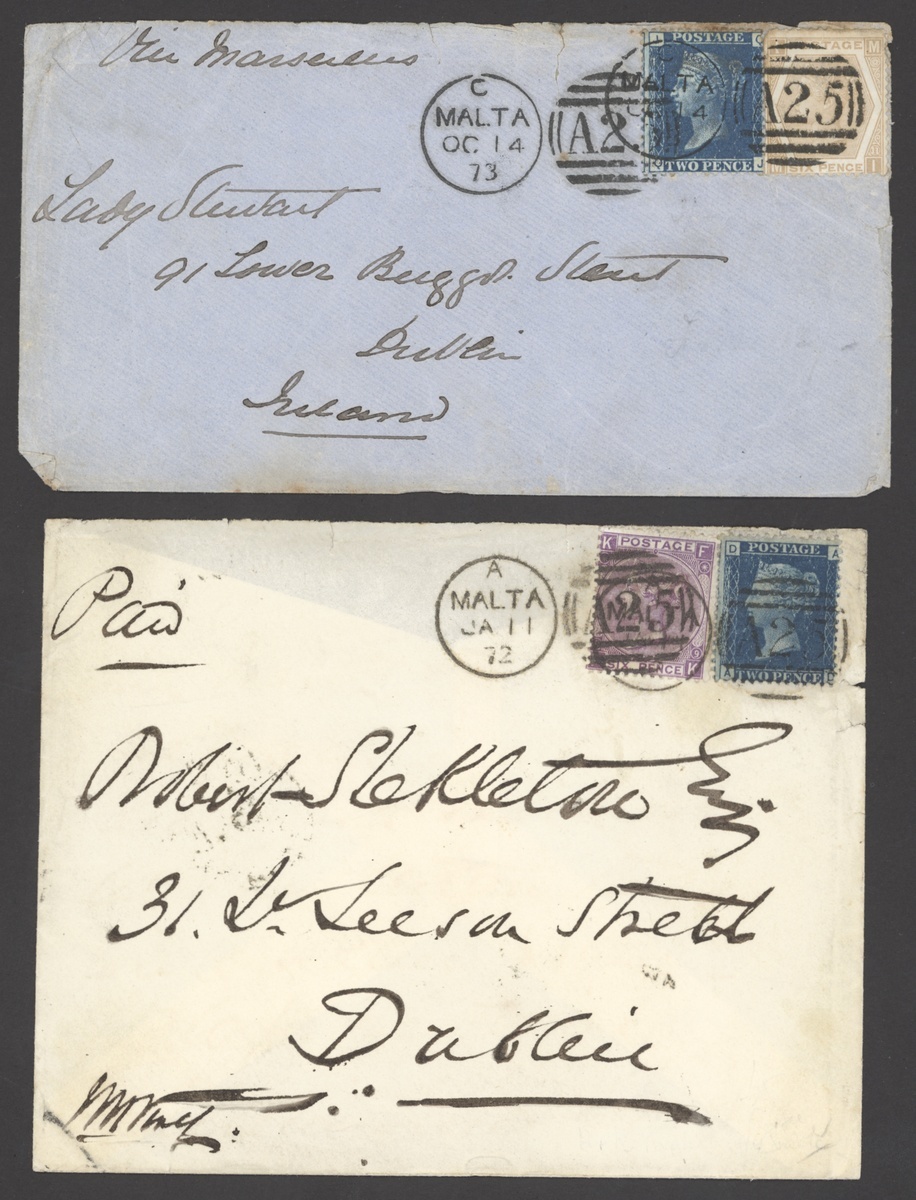 Via Marseilles
C
MALTA
OC 14
73
A25
POSTAGE
TWO PENCE
C
MALTA
14
POSTAGE M
M SIX PENCE I
A25
Lady Stewart
91 Lower Baggot Street
Dublin
Ireland
Paid
A
MALTA
JA 11
72
K POSTAGE F
A25
MALTA
9
SIX PENCE K
D POSTAGE A
A25
A TWO PENCE D
Robert Stekleton Esq
31. Lr. Leeson Street
Dublin